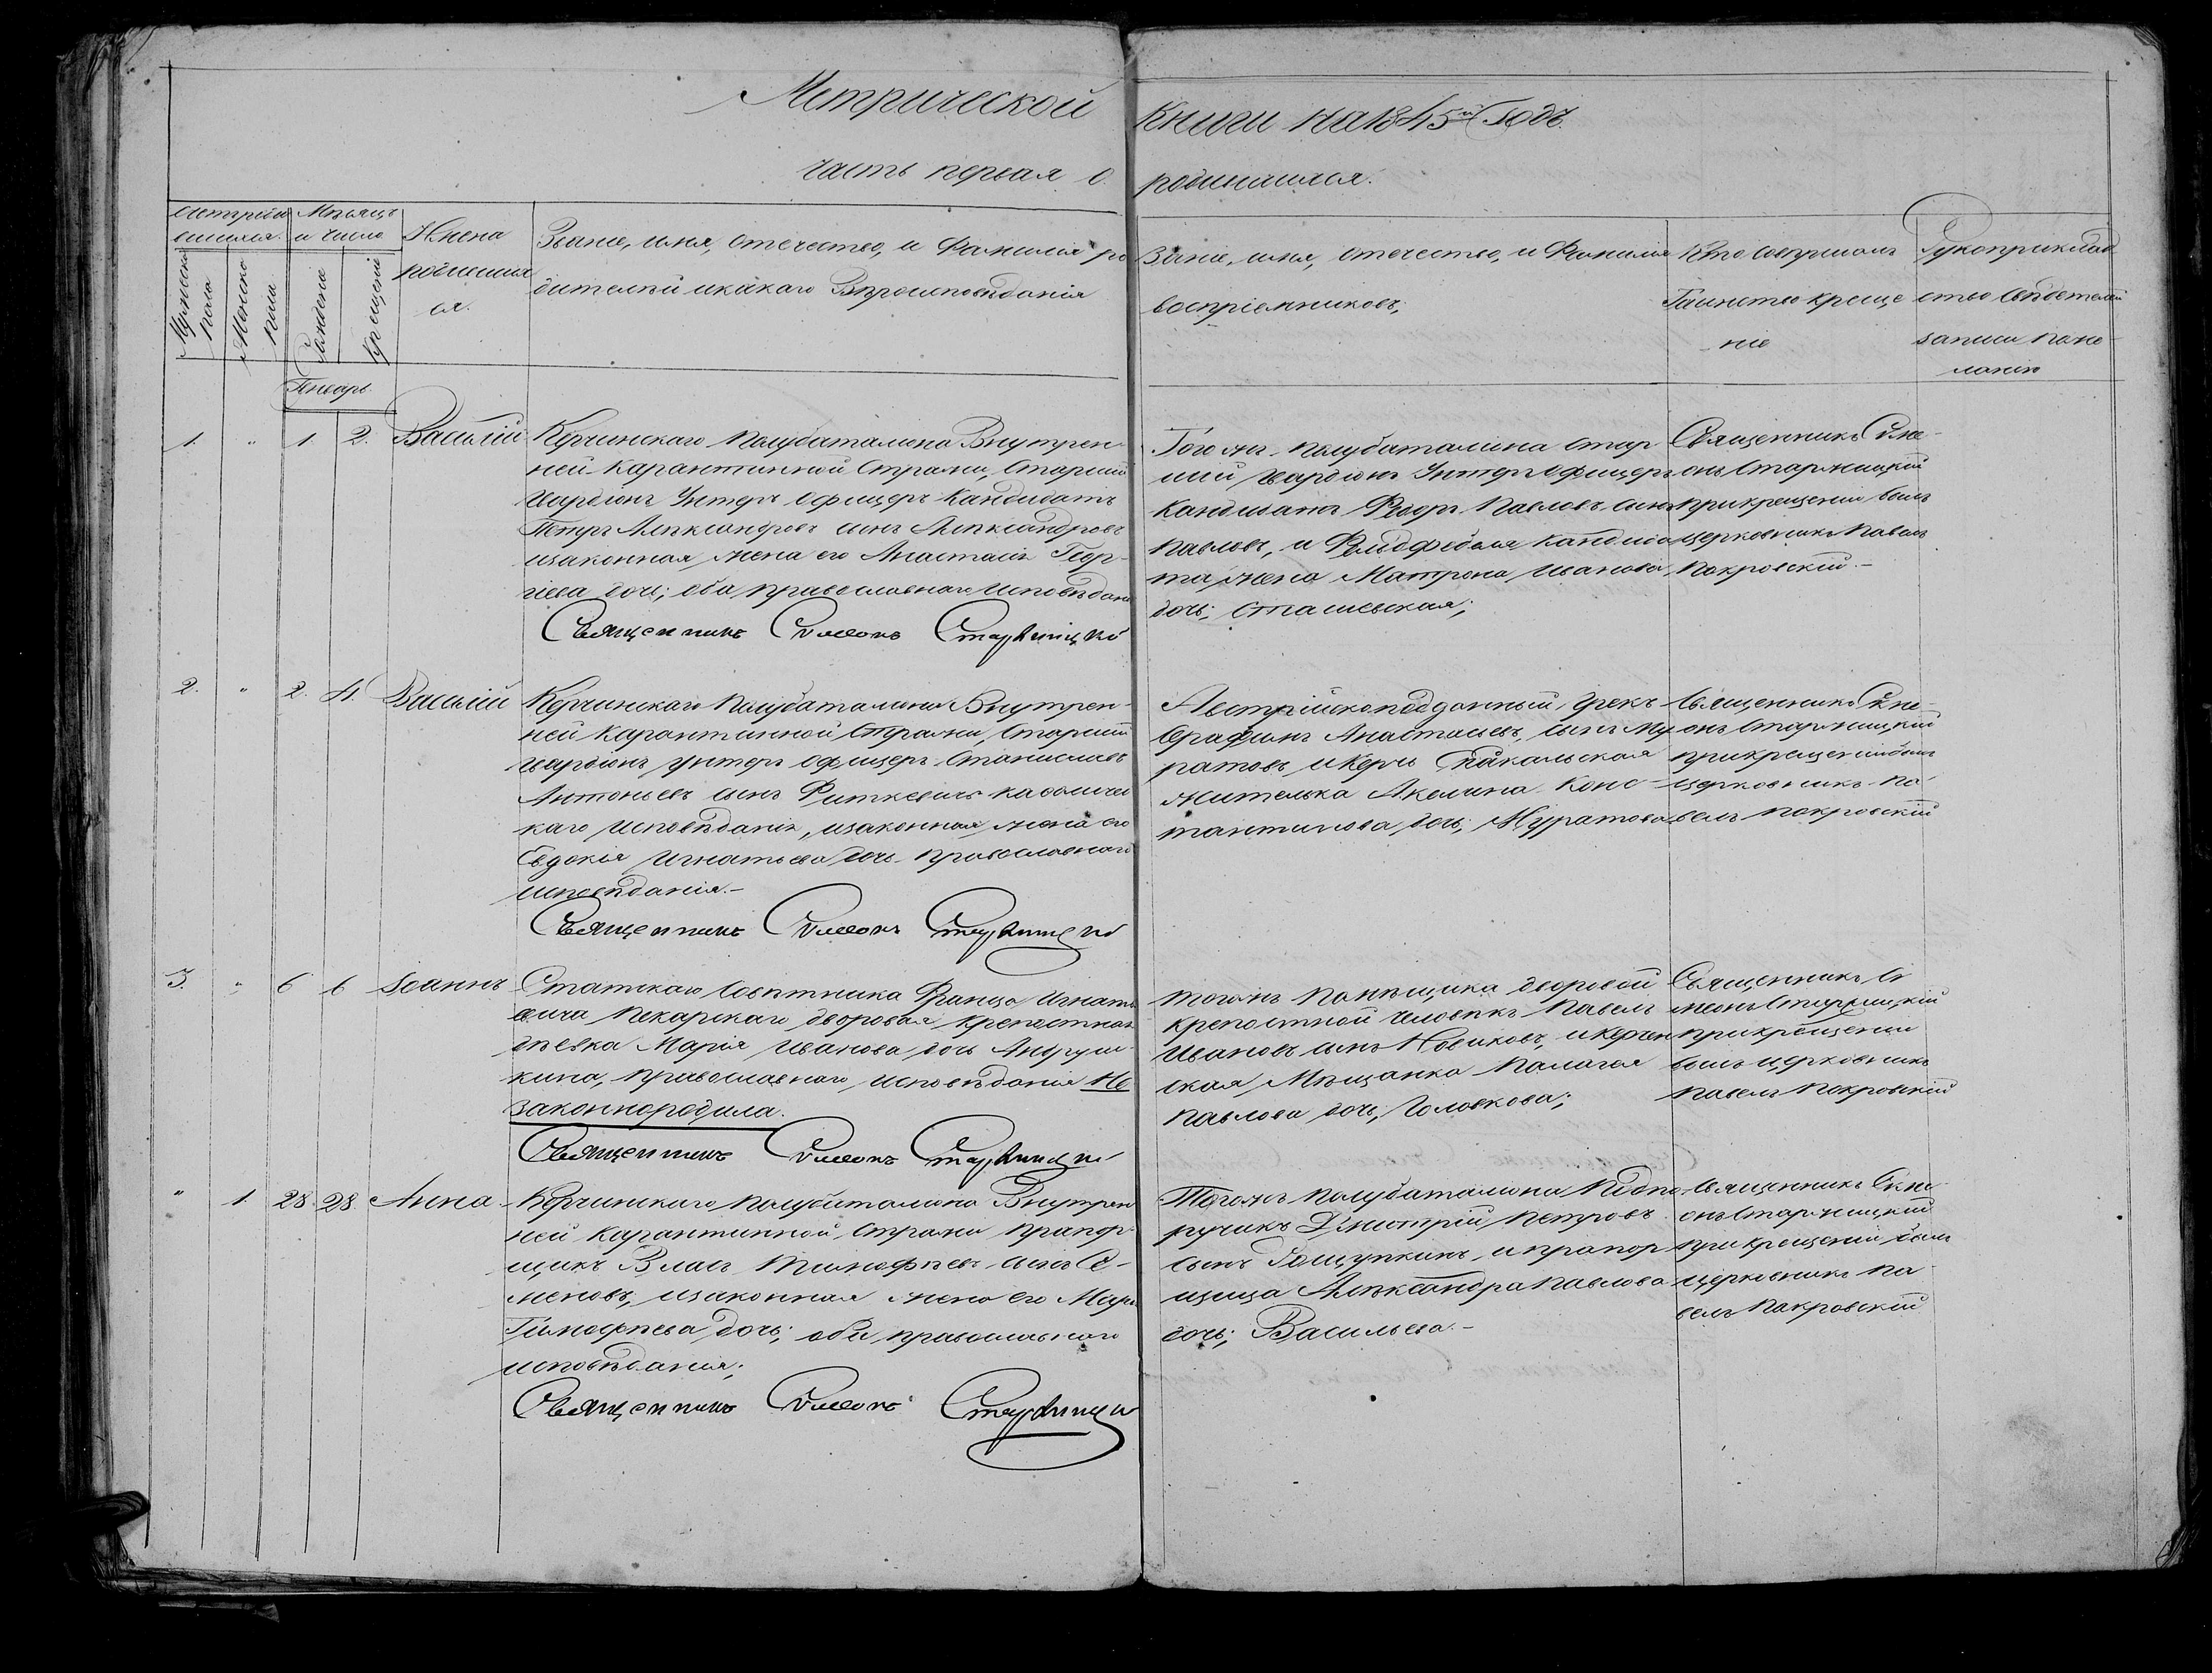 Метрической Книги на 1845й Годъ.
часть первая о родившихся.
Мужеска пола
Женска пола
Месяцъ и число
Рожденія
Крещенія
Имена
родивших
ся.
Званіе, имя, отечество, и Фамилія ро
дителей и какого Вѣроисповѣданія
Званіе, имя, отечество, и Фамилія
воспріемниковъ;
Кто совершалъ
Таинство креще
ніе
Рукоприклад
ство свѣдетелей
записи поже
ланію
Январь.
1. " 1. 2. Василій
Керчинскаго Полубаталіона Внутрен
ней Карантинной Стражи, Старшій
Гвардіонъ Унтеръ Офицеръ Кандидатъ
Петръ Александровъ сынъ Александровъ
изаконная жена его Анастасія Геор-
гіева дочь; оба православнаго исповѣдан
Священникъ Симеонъ Старжицкій
Того жъ полубаталіона стар
шій гвардіонъ Унтеръ Офицеръ
Кандидатъ Федоръ Павловъ сынъ
Павловъ, и кандида
та жена Матрона Иванова
дочь; Сташевская;
Священникъ Симе-
онъ Старжицкій
при крещеніи былъ
церковникъ Павелъ
Покровскій.-
2. " 2. 4. Василій
Керчинскаго Полубаталіона Внутрен-
ней Карантинной Стражи, Старшій
гвардіонъ унтеръ офицеръ Станиславъ
Антоньевъ сынъ Риткевичъ католичес
каго исповѣданія, изаконная жена его
Евдокія Игнатьева дочь православнаго
исповѣданія.-
Священникъ Симеонъ Старжицкій
Австрійскоподданный, Грекъ
Серафимъ Анастасьевъ, сынъ Му
ратовъ, и Керчь Еникальская
жителька Акелина Конс-
тантинова дочь; Муратова
Священникъ Симе
онъ Старжицкій
при крещеніи былъ
церковникъ Па
велъ Покровскій
3. " 6 6 Іоаннъ
Статскаго Совѣтника Франца Игнать
евича Пекарскаго дворовая крепостная
дѣвка Марія Иванова дочь Андрущ-
кина, православнаго исповѣданія Не
законнородила.
Священникъ Симеонъ Старжицкій
Того жъ Помѣщика дворовой
крепостной человѣкъ Павелъ
Ивановъ сынъ Новиковъ, и Керчен
ская Мѣщанка Палагея
Павлова дочь, Головкова;
Священникъ Си
меонъ Старжицкій
при крещеніи
былъ церковникъ
Павелъ Покровскій
" 1. 28. 28. Анна.
Керчинскаго Полубаталіона Внутрен
ней Карантинной Стражи Прапор
щикъ Власъ Тимофѣевъ сынъ Се-
меновъ, изаконная жена его Марія
Тимофѣева дочь; оба православнаго
исповѣданія;
Священникъ Симеонъ Старжицкій
Того жъ Полубаталіона Подпо
ручикъ Дмитрій Петровъ
сынъ Рощупкинъ и прапор
щица Александра Павлова
дочь; Васильева.-
Священникъ Симе-
онъ Старжицкій
при крещеніи былъ
церковникъ Па
велъ Покровскій